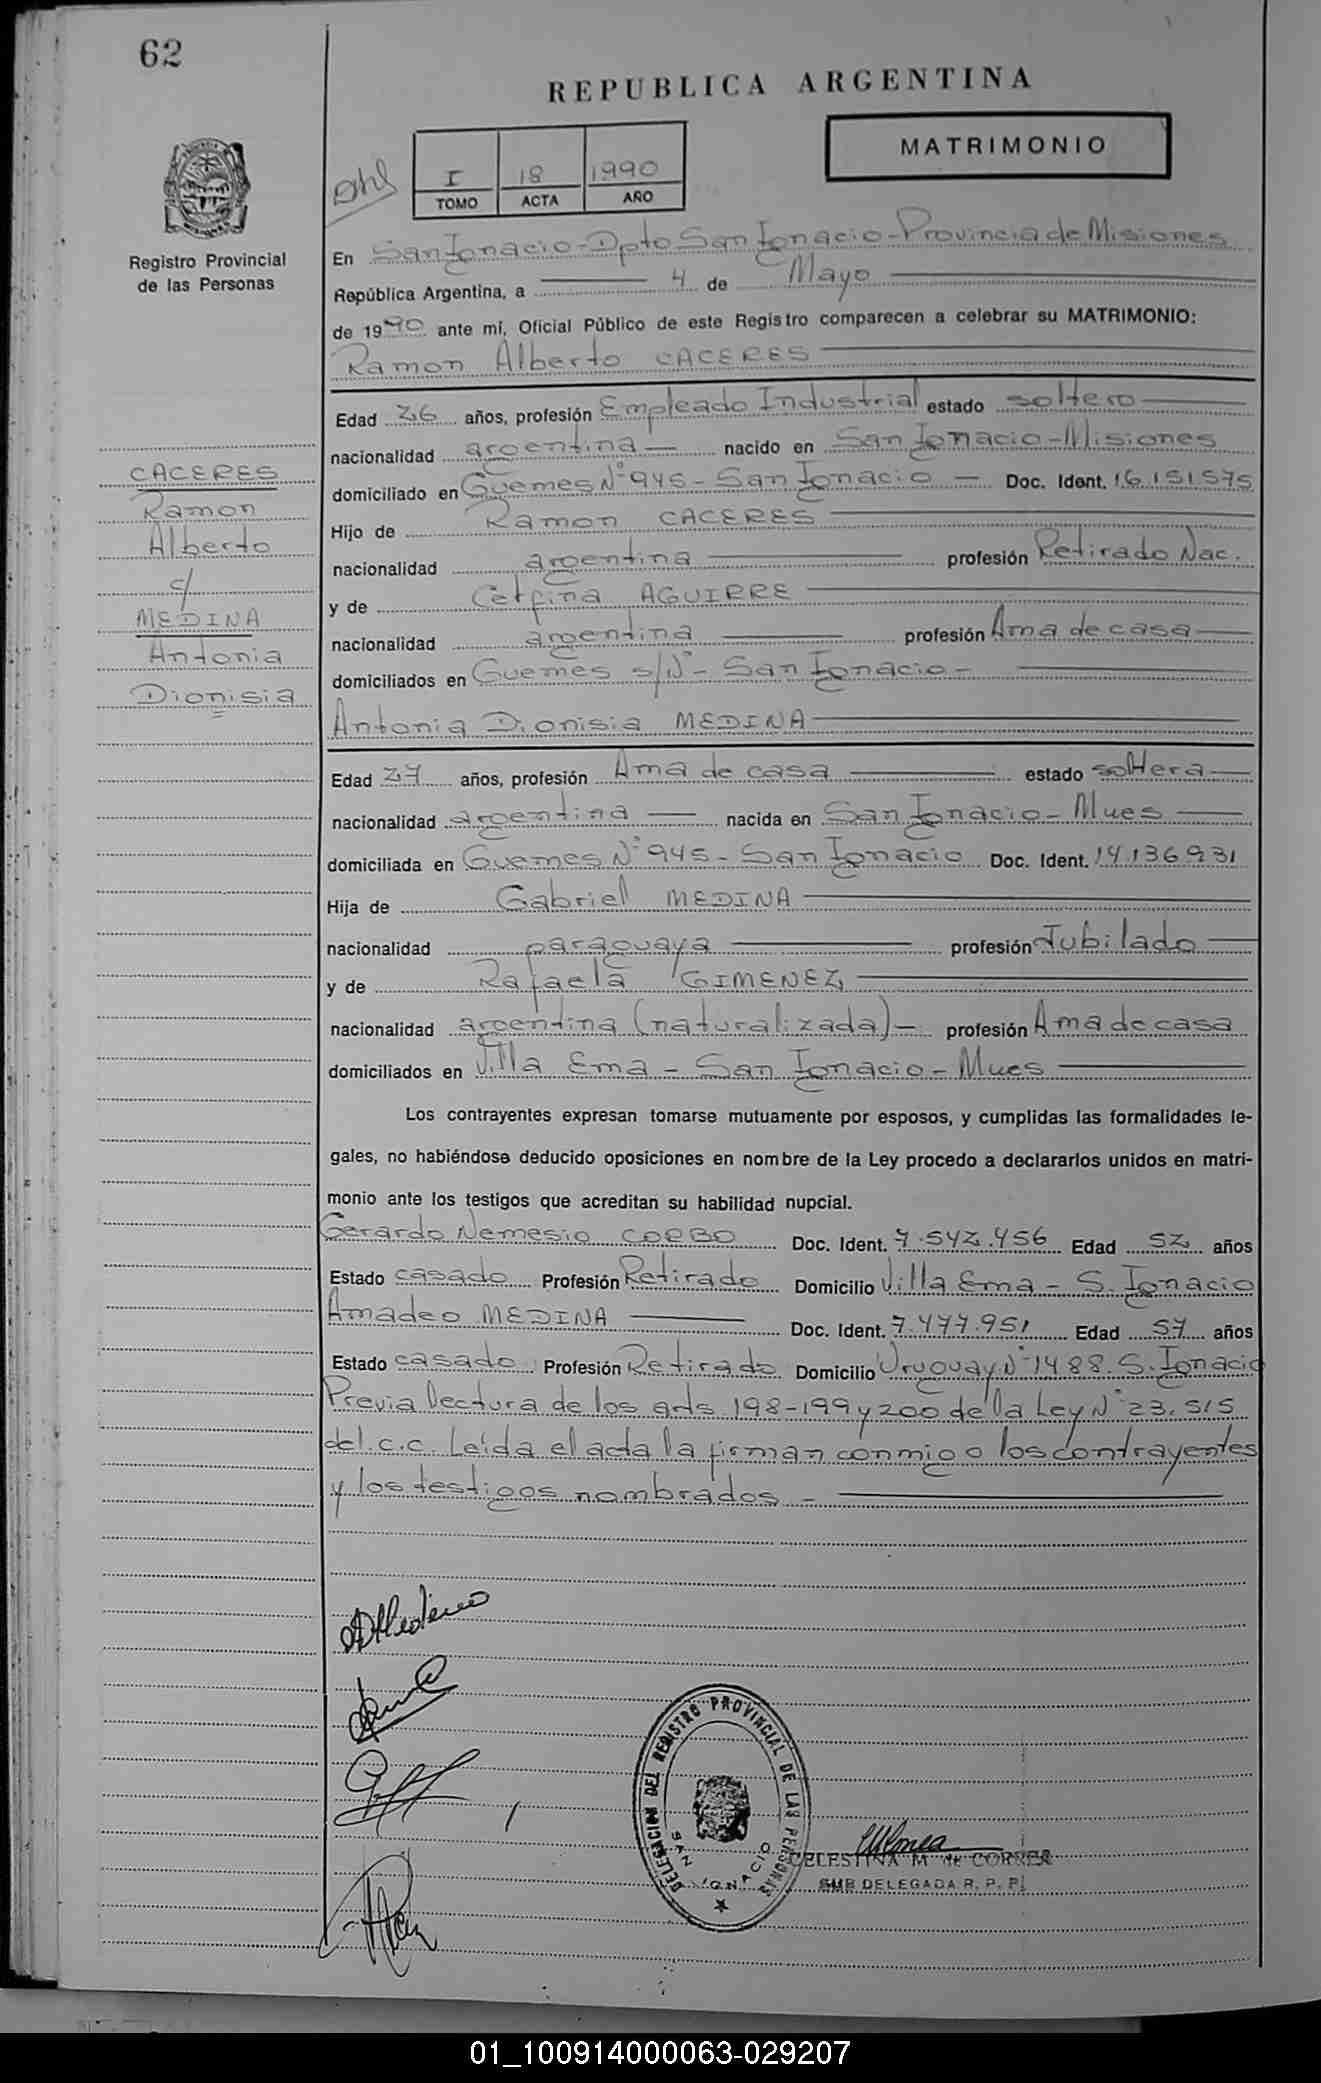 62
REPUBLICA ARGENTINA
MATRIMONIO
I 18 1990
TOMO ACTA AÑO
Registro Provincial
de las Personas
En San Ignacio - Dpto San Ignacio - Provincia de Misiones
República Argentina, a 4 de Mayo
de 1990 ante mí, Oficial Público de este Registro comparecen a celebrar su MATRIMONIO:
Ramon Alberto CACERES
Edad 26 años, profesión Empleado Industrial estado soltero
nacionalidad argentina nacido en San Ignacio - Misiones
domiciliado en Guemes N° 945 - San Ignacio - Doc. Ident. 16.151.575
Hijo de Ramon CACERES
nacionalidad argentina profesión Retirado Nac.
y de AGUIRRE
nacionalidad argentina profesión Ama de casa
domiciliados en Guemes s/N° - San Ignacio -
Antonia Dionisia MEDINA
CACERES
Ramon
Alberto
c/
MEDINA
Antonia
Dionisia
Edad 27 años, profesión Ama de casa estado soltera
nacionalidad argentina nacida en San Ignacio - Mnes
domiciliada en Guemes N° 945 - San Ignacio Doc. Ident. 14.136.931
Hija de Gabriel MEDINA
nacionalidad paraguaya profesión Jubilado
y de Rafaela GIMENEZ
nacionalidad argentina (naturalizada) - profesión Ama de casa
domiciliados en Villa Ema - San Ignacio - Mnes
Los contrayentes expresan tomarse mutuamente por esposos, y cumplidas las formalidades le-
gales, no habiéndose deducido oposiciones en nombre de la Ley procedo a declararlos unidos en matri-
monio ante los testigos que acreditan su habilidad nupcial.
Gerardo Nemesio CORBO Doc. Ident. 7.542.456 Edad 52 años
Estado casado Profesión Retirado Domicilio Villa Ema - S. Ignacio
Amadeo MEDINA Doc. Ident. 7.477.951 Edad 57 años
Estado casado Profesión Retirado Domicilio Uruguay N° 1488 S. Ignacio
Previa lectura de los arts 198-199 y 200 de la Ley N° 23.515
del c.c. Leída el acta la firman conmigo los contrayentes
y los testigos nombrados -
DELEGACION DEL REGISTRO PROVINCIAL DE LAS PERSONAS
SAN IGNACIO
CELESTINA M de CORREA
SUB DELEGADA R. P. P.
01_100914000063-029207